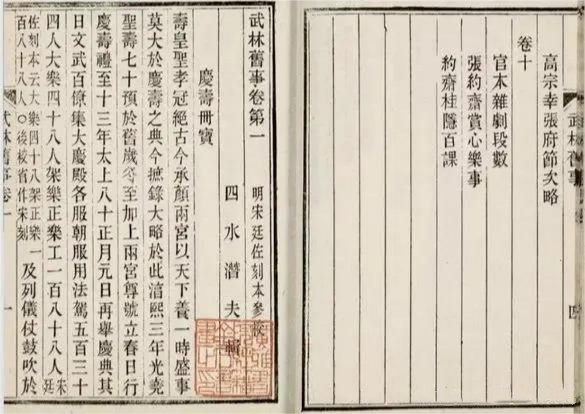 高宗幸張府節次略
卷十
官本雜劇段數
張約齋賞心樂事
約齋桂隱百課
武林舊事
四
武林舊事卷第一
明宋廷佐刻本參校
四水潛夫輯
慶壽冊寶
壽皇聖孝冠絕古今承顏兩宮以天下養一時盛事
莫大於慶壽之典今摭錄大略於此湻熙三年光堯
聖壽七十預於舊歲冬至加上兩宮尊號立春日行
慶壽禮至十三年太上八十正月元日再舉慶典其
日文武百僚集大慶殿各服朝服用法駕五百三十
四人大樂四十八人架樂正樂工一百八十八人宋廷
佐刻本云大樂四十八架樂正樂一百八十八人○後校省作宋刻及列儀仗鼓吹於
武林舊事卷一
一